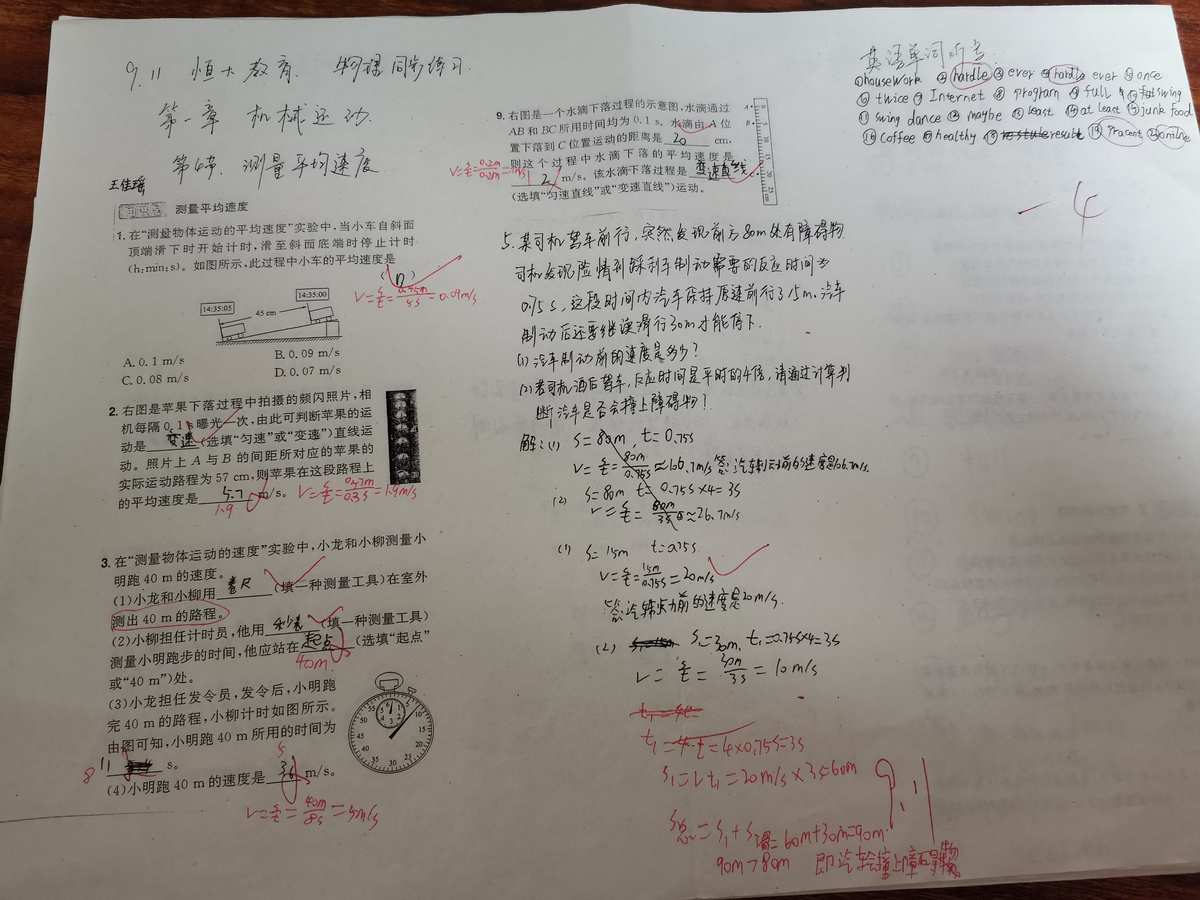 9.11 恒大教育 物理同步练习.
第一章 机械运动.
第4节. 测量平均速度
王佳瑶
测量平均速度
1. 在“测量物体运动的平均速度”实验中,当小车自斜面
顶端滑下时开始计时,滑至斜面底端时停止计时
(h:min:s)。如图所示,此过程中小车的平均速度是
( D )
v=s/t=0.45m/5s=0.09m/s
14:35:05
14:35:00
45 cm
A. 0.1 m/s
B. 0.09 m/s
C. 0.08 m/s
D. 0.07 m/s
2. 右图是苹果下落过程中拍摄的频闪照片,相
机每隔 0.1 s 曝光一次,由此可判断苹果的运
动是 变速 (选填“匀速”或“变速”)直线运
动。照片上 A 与 B 的间距所对应的苹果的
实际运动路程为 57 cm,则苹果在这段路程上
的平均速度是 5.7 m/s。 v=s/t=0.57m/0.3s=1.9m/s
1.9
3. 在“测量物体运动的速度”实验中,小龙和小柳测量小
明跑 40 m 的速度。
(1)小龙和小柳用 卷尺 (填一种测量工具)在室外
测出 40 m 的路程。
(2)小柳担任计时员,他用 秒表 (填一种测量工具)
测量小明跑步的时间,他应站在 起点 (选填“起点”
40m
或“40 m”)处。
(3)小龙担任发令员,发令后,小明跑
完 40 m 的路程,小柳计时如图所示。
由图可知,小明跑 40 m 所用的时间为
8 11 s。
(4)小明跑 40 m 的速度是 3.6 m/s。
5
v=s/t=40m/8s=5m/s
9. 右图是一个水滴下落过程的示意图,水滴通过
AB 和 BC 所用时间均为 0.1 s。水滴由 A 位
置下落到 C 位置运动的距离是 20 cm,
则这个过程中水滴下落的平均速度是
v=s/t=0.2m/0.2s=1m/s
1 2 m/s。该水滴下落过程是 变速直线
(选填“匀速直线”或“变速直线”)运动。
5. 某司机驾车前行,突然发现前方80m处有障碍物.
司机发现险情到踩刹车制动需要的反应时间为
0.75s,这段时间内汽车保持原速前行了15m.汽车
制动后还要继续滑行30m才能停下.
(1)汽车制动前的速度是多少?
(2)若司机酒后驾车,反应时间是平时的4倍,请通过计算判
断汽车是否会撞上障碍物?
解:(1) s=80m, t=0.75s
v=s/t=80m/0.75s≈106.7m/s 答:汽车制动前的速度是106.7m/s.
(2) s=80m t=0.75s×4=3s
v=s/t=80m/3s≈26.7m/s
(1) s=15m t=0.75s
v=s/t=15m/0.75s=20m/s
答:汽车制动前的速度是20m/s.
(2) s=30m, t₁=0.75s×4=3s
v=s/t=30m/3s=10m/s
t₁=4t=4×0.75s=3s
s₁=vt₁=20m/s×3s=60m
s总=s₁+s滑=60m+30m=90m
90m>80m 即汽车会撞上障碍物
9.11
英语单词听写
①housework ②hardle ③ever ④hardl ever ⑤once
⑥twice ⑦Internet ⑧program ⑨full ⑩swing
⑪swing dance ⑫maybe ⑬least ⑭at least ⑮junk food
⑯coffee ⑰healthy ⑱result ⑲pracent ⑳onilne
-4